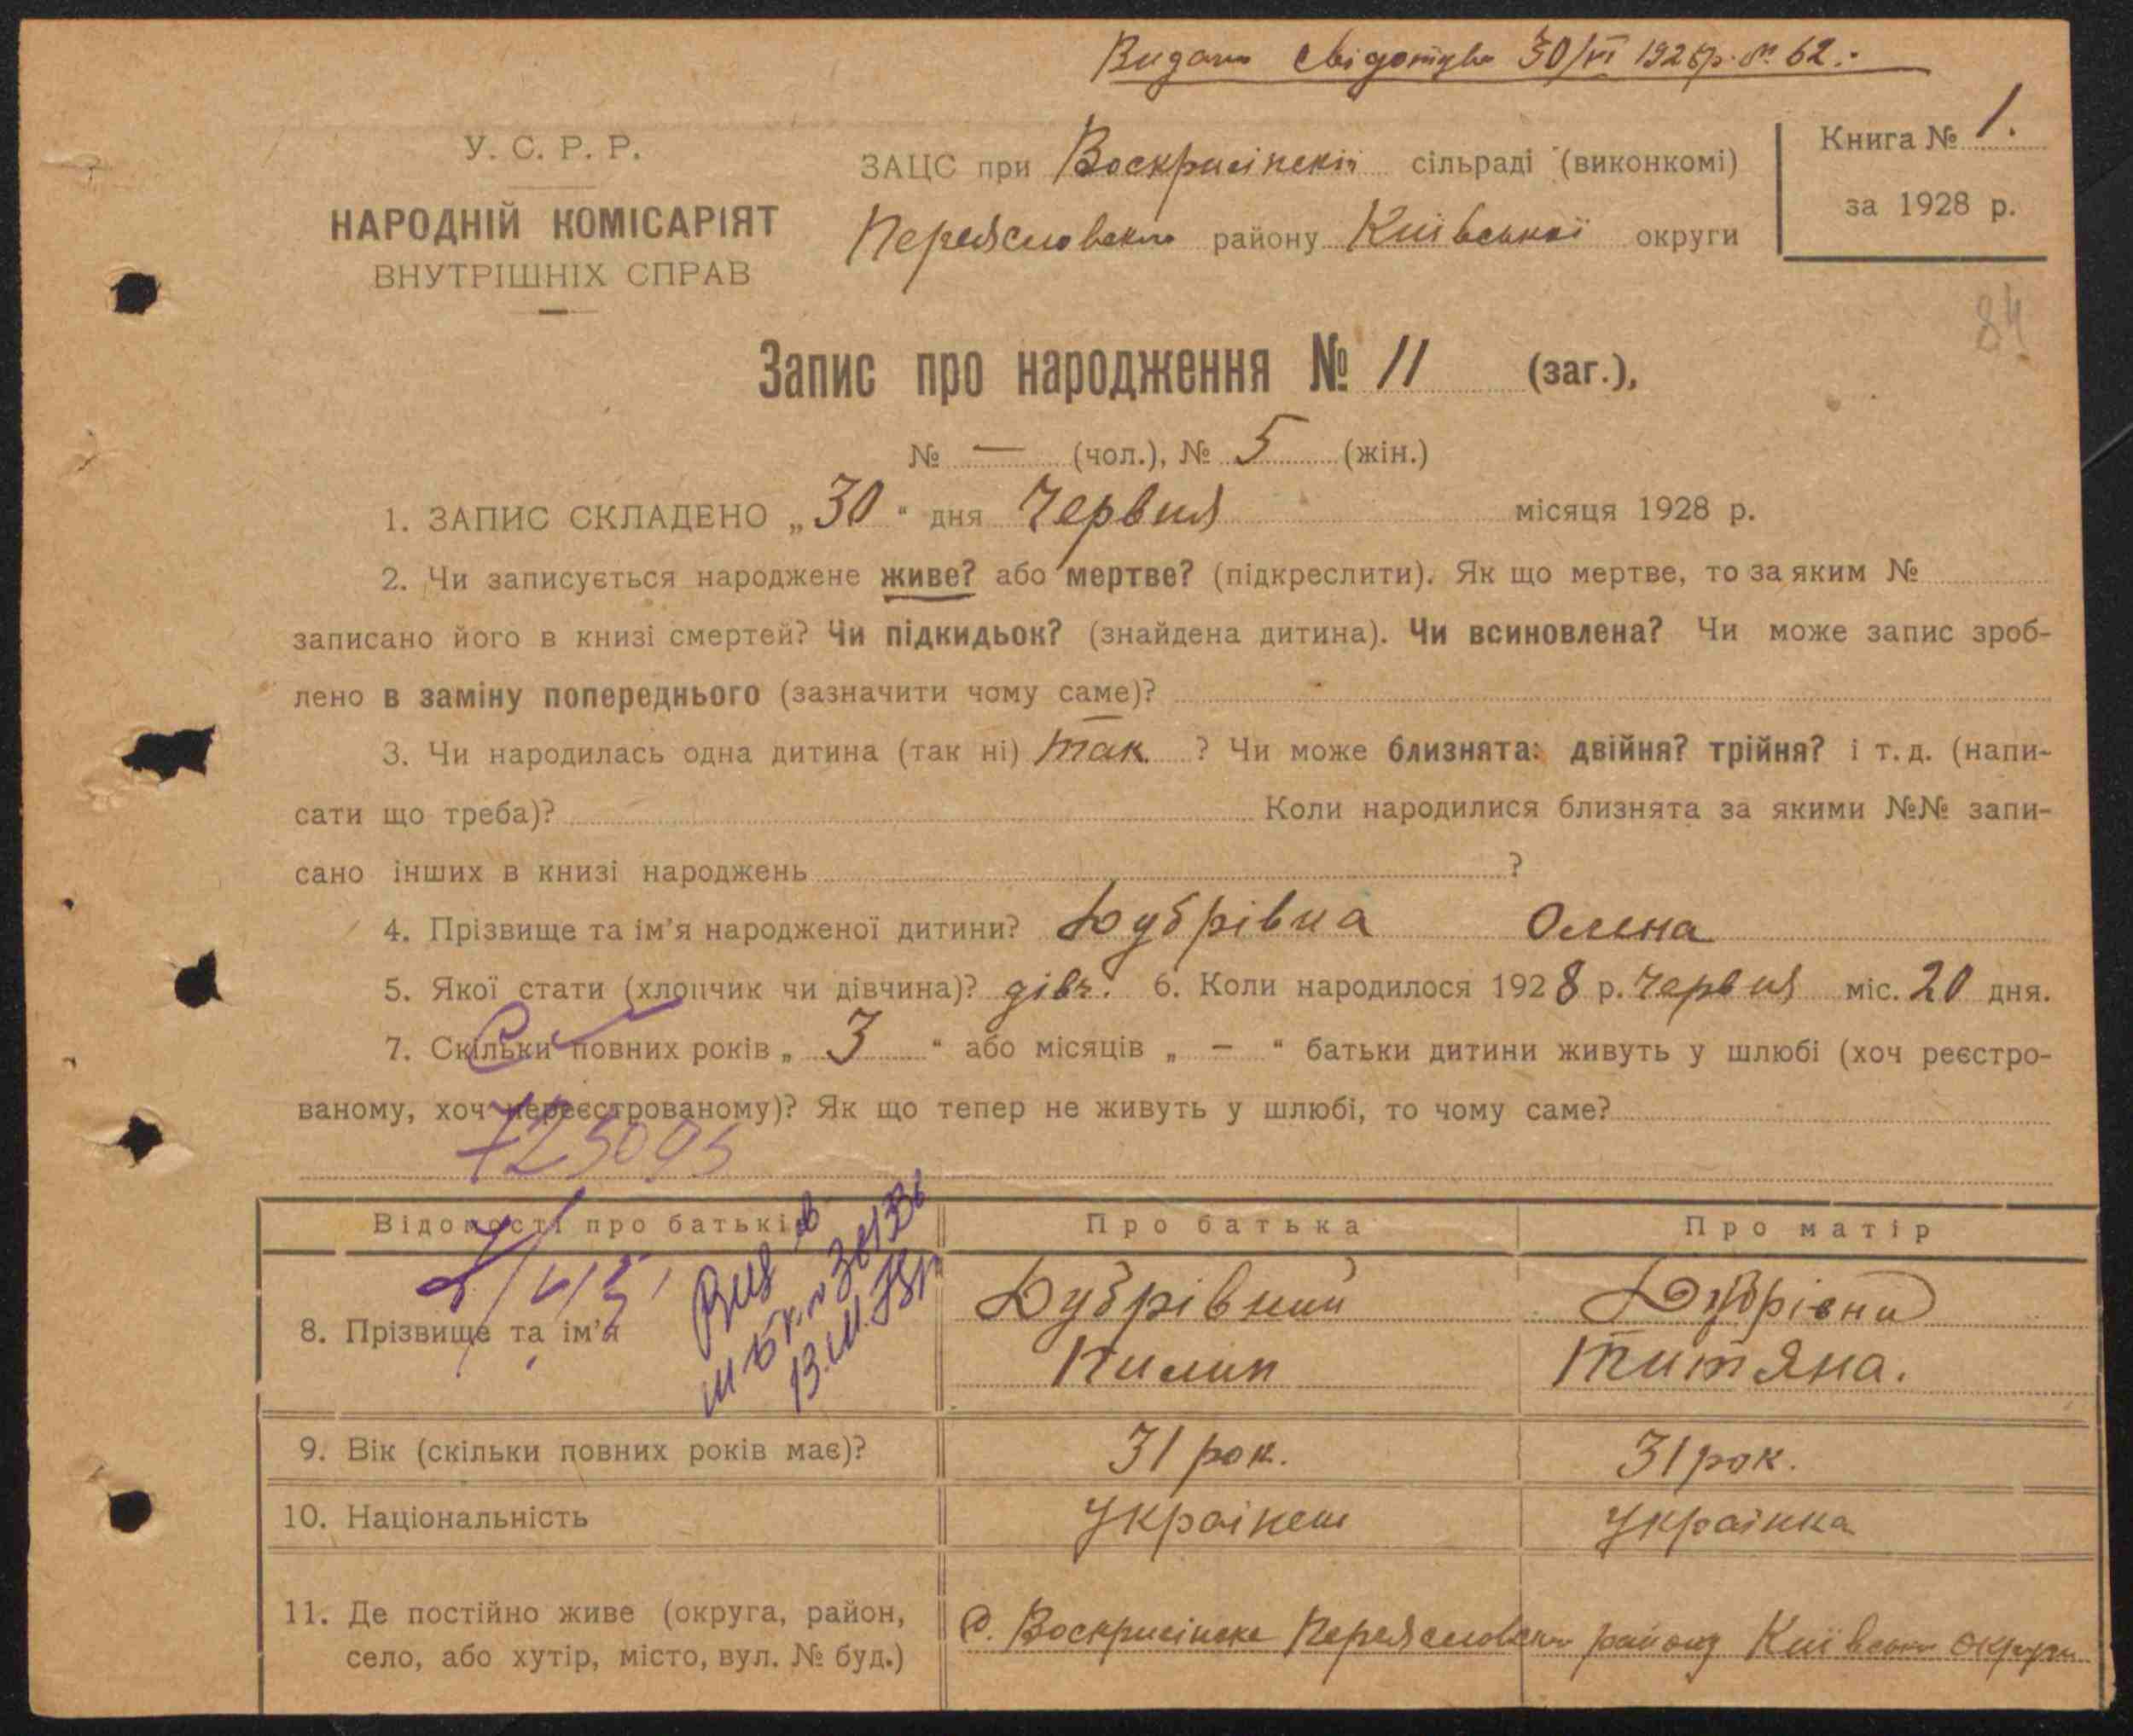 Видано свідотство 30/VI 1928р. № 62.
У. С. Р. Р.
НАРОДНІЙ КОМІСАРІЯТ
ВНУТРІШНІХ СПРАВ
ЗАЦС при Воскрисінскій сільраді (виконкомі)
Переясловського району Київської округи
Книга № 1.
за 1928 р.
84
Запис про народження № 11 (заг.),
№ — (чол.), № 5 (жін.)
1. ЗАПИС СКЛАДЕНО „30“ дня Червня місяця 1928 р.
2. Чи записується народжене живе? або мертве? (підкреслити). Як що мертве, то за яким №
записано його в книзі смертей? Чи підкидьок? (знайдена дитина). Чи всиновлена? Чи може запис зроб-
лено в заміну попереднього (зазначити чому саме)?
3. Чи народилась одна дитина (так ні) так ? Чи може близнята: двійня? трійня? і т. д. (напи-
сати що треба)? Коли народилися близнята за якими №№ запи-
сано інших в книзі народжень ?
4. Прізвище та ім'я народженої дитини? Дубрівна Олена
5. Якої стати (хлопчик чи дівчина)? дівч. 6. Коли народилося 1928 р. Червня міс. 20 дня.
7. Скільки повних років „ 3 “ або місяців „ – “ батьки дитини живуть у шлюбі (хоч реєстро-
ваному, хоч нереєстрованому)? Як що тепер не живуть у шлюбі, то чому саме?
Відомості про батьків Про батька Про матір
8. Прізвище та ім'я Дубрівний Дубрівна
Пилип Титяна.
9. Вік (скільки повних років має)? 31 рок. 31 рок.
10. Національність Українець Українка
11. Де постійно живе (округа, район,
село, або хутір, місто, вул. № буд.) с. Воскрисінске Переясловского району Київської округи